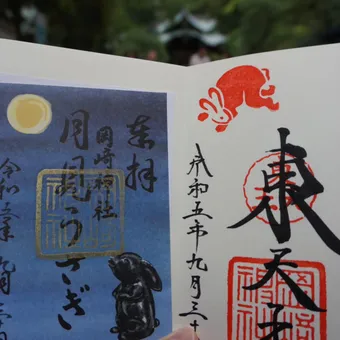 東天王
令和五年九月三十
奉拝
岡崎神社
月見うさぎ
令和五年九月三